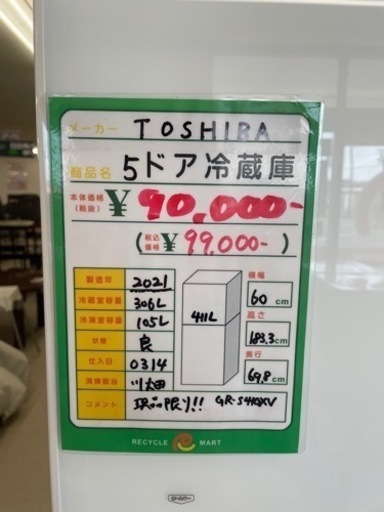 メーカー TOSHIBA
商品名 5ドア冷蔵庫
本体価格(税抜) ¥90,000-
(税込価格 ¥99,000-)
製造年 2021
冷蔵室容量 306L
冷凍室容量 105L
状態 良
仕入日 0314
清掃担当 川太田
411L
横幅 60cm
高さ 183.3cm
奥行 69.8cm
コメント 現品限り!! GR-S41GXV
RECYCLE MART